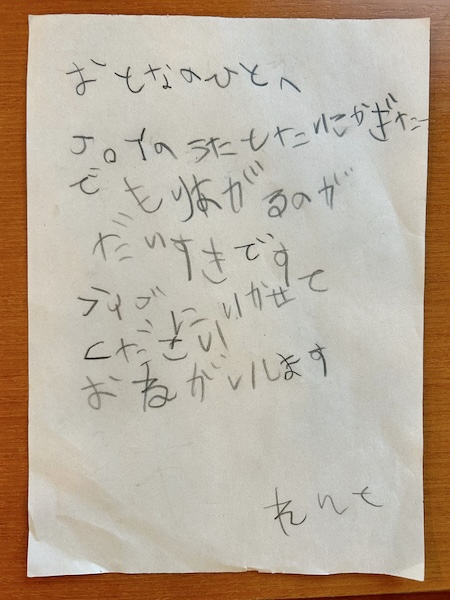 おとなのひとへ
JOYのうたもたいにかぎたー
でもりはがるのが
だいすきです
ライブにいかせて
ください
おねがいします
れんと